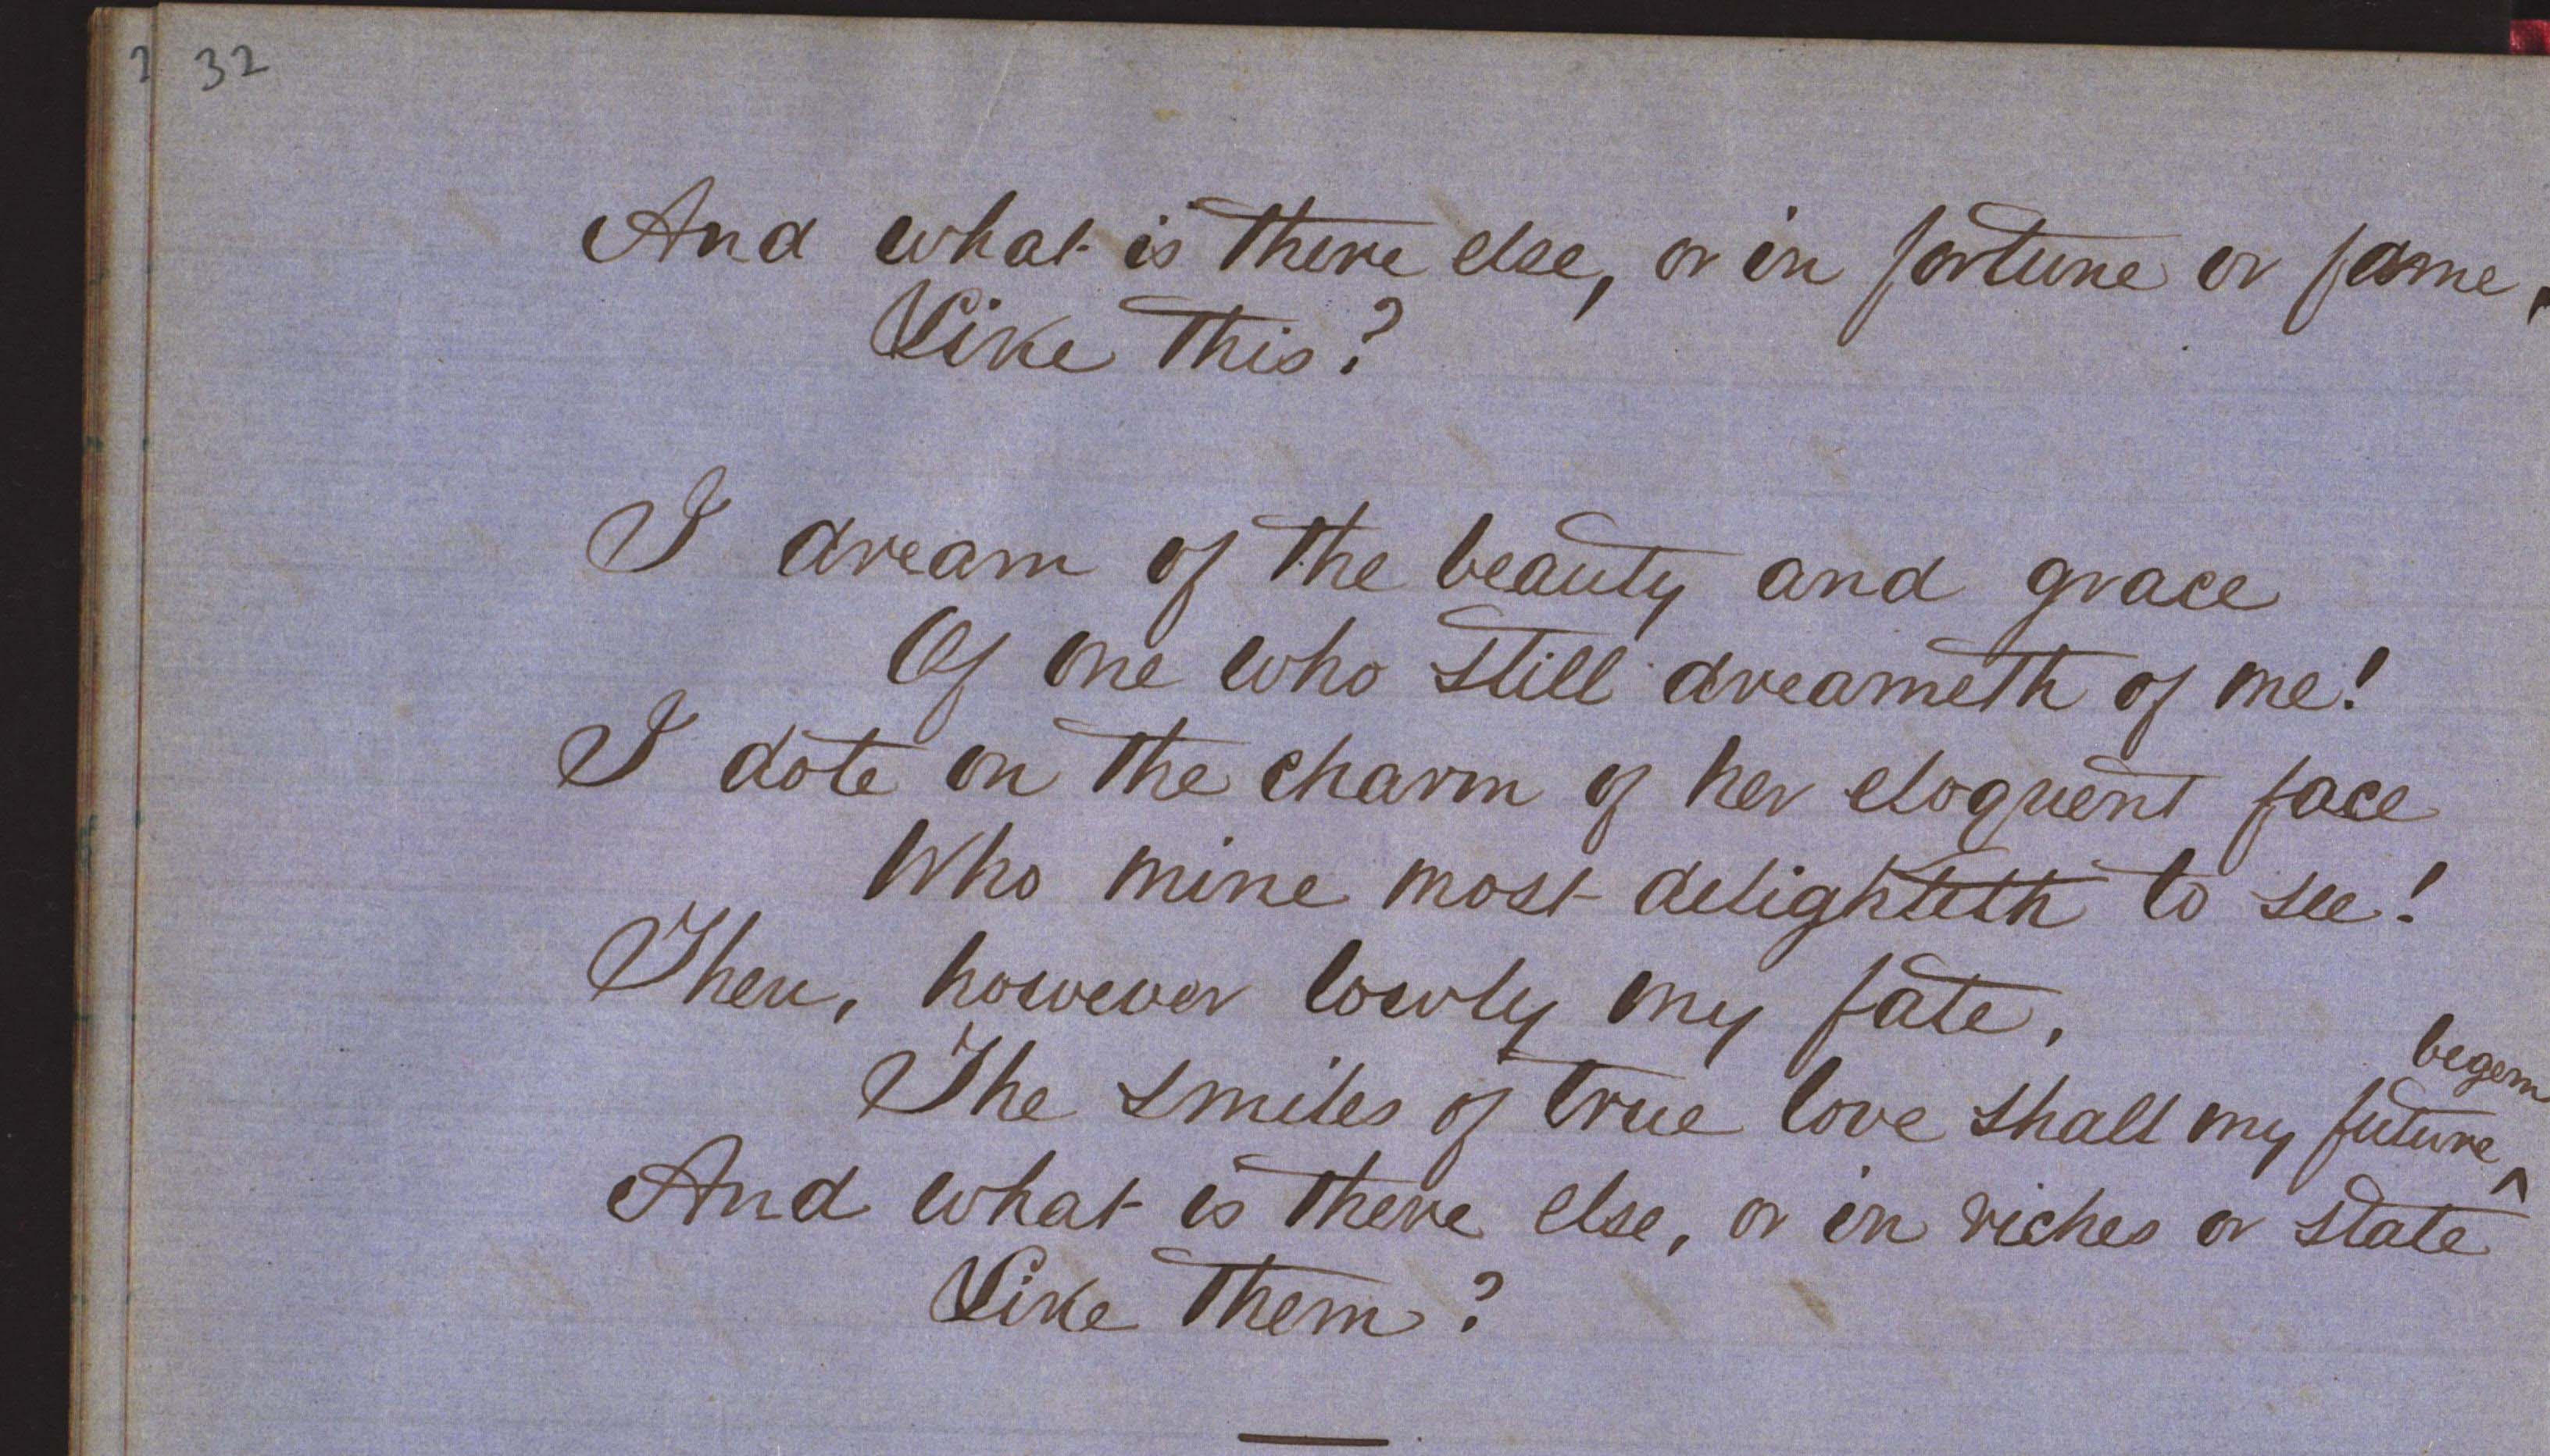 32
And what is there else, or in fortune or fame,
Like this?
I dream of the beauty and grace
Of one who still dreameth of me!
I dote on the charm of her eloquent face
Who mine most delighteth to see!
Then, however lowly my fate,
begem
The smiles of true love shall my future ^
And what is there else, or in riches or state
Like them?